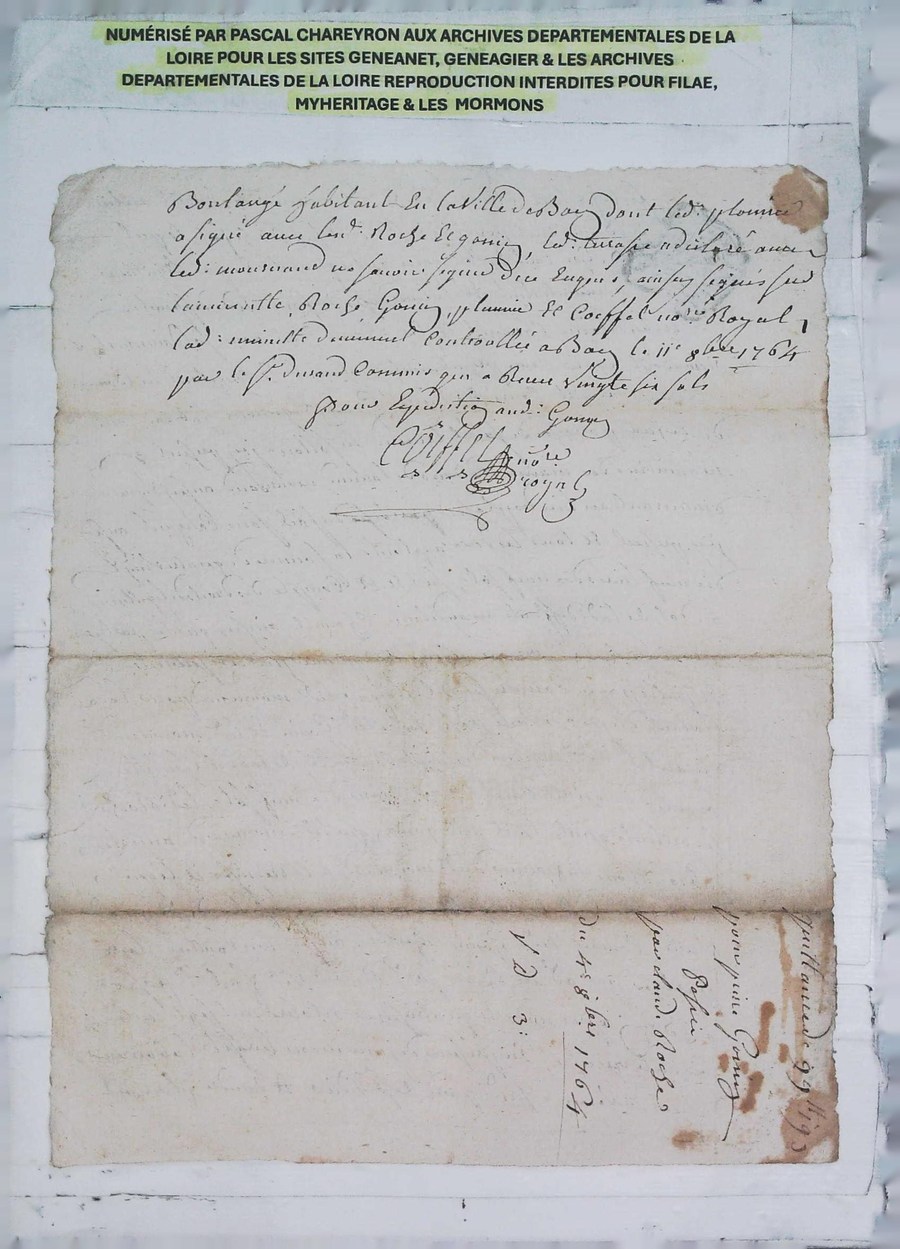 NUMÉRISÉ PAR PASCAL CHAREYRON AUX ARCHIVES DEPARTEMENTALES DE LA
LOIRE POUR LES SITES GENEANET, GENEAGIER & LES ARCHIVES
DEPARTEMENTALES DE LA LOIRE REPRODUCTION INTERDITES POUR FILAE,
MYHERITAGE & LES MORMONS
Boulangé habitant En la Ville de Boen dont led:
a signé avec led: Roche Et gonin, led: terrasse a déclaré avec
led: ne savoir signé de ce Enquis, ainsy signés sur
la minutte, Roche, Gonin, plumie Et Coiffet nore Royal,
lad: minutte duement Controllée a Boen le 11e 8bre 1764
par le Sr. durand Commis qui a Reçu Vingt six sols
Pour Expedition aud: Gonin
Coiffet nore
royal
quittance de 99 ll 19 s
pour pierre Gonin
passée
par claude Roche
du 4e 8bre 1764
3: